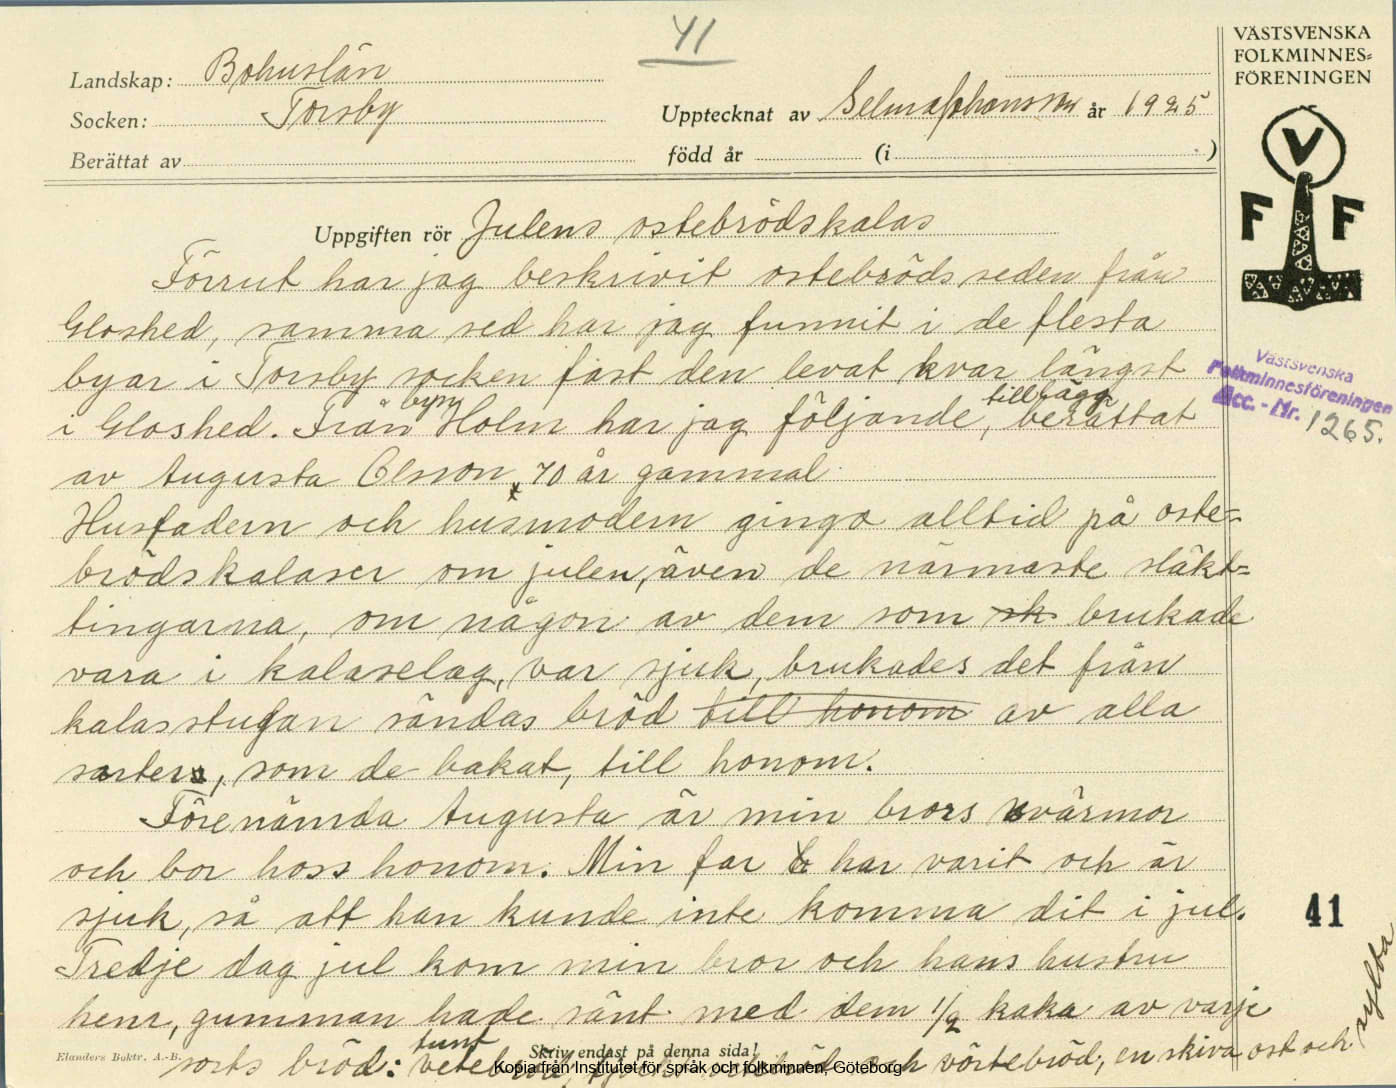 41
VÄSTSVENSKA
FOLKMINNES=
FÖRENINGEN
Landskap: Bohuslän
Socken: Torsby
Upptecknat av Selma Johansson år 1925
Berättat av
född år (i )
V
F F
Uppgiften rör Julens ostebrödskalas
Förrut har jag beskrivit ostebrödsseden från
Gloshed, samma sed har jag funnit i de flesta
byar i Torsby socken fast den levat kvar längst
i Gloshed. Från byn Holm har jag följande, tillägg berättat
av Augusta Olsson, 70 år gammal
Husfadern och husmodern gingo alltid på oste=
brödskalaser om julen, även de närmaste släkt=
tingarna, om någon av dem som sk brukade
vara i kalaselag, var sjuk, brukades det från
kalasstugan sändas bröd till honom av alla
sorter, som de bakat, till honom.
Förenämda Augusta är min brors svärmor
och bor hoss honom. Min far har varit och är
sjuk, så att han kunde inte komma dit i jul.
Tredje dag jul kom min bror och hans hustru
hem, gumman hade sänt med dem 1/2 kaka av varje
sorts bröd: tunt vetebröd, och vörtebröd, en skiva ost och
sylta
Västsvenska
Folkminnesföreningen
Acc. - Nr. 1265.
41
Elanders Boktr. A.-B.
Skriv endast på denna sida!
Kopia från Institutet för språk och folkminnen, Göteborg